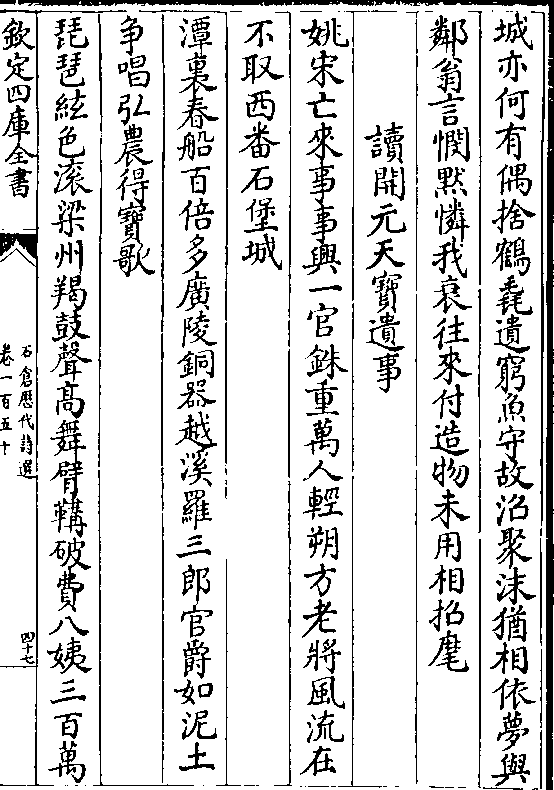 城亦何有偶捨鶴毳遺窮魚守故沼聚沫猶相依夢與
鄰翁言憫默憐我衰往來付造物未用相招麾
讀開元天寶遺事
姚宋亡來事事興一官銖重萬人輕朔方老將風流在
不取西番石堡城
潭裏春船百倍多廣陵銅器越溪羅三郎官爵如泥土
争唱弘農得寶歌
琵琶絃色滚梁州羯鼓聲高舞臂鞲破費八姨三百萬
欽定四庫全書
石倉歴代詩選
卷一百五十
四十七